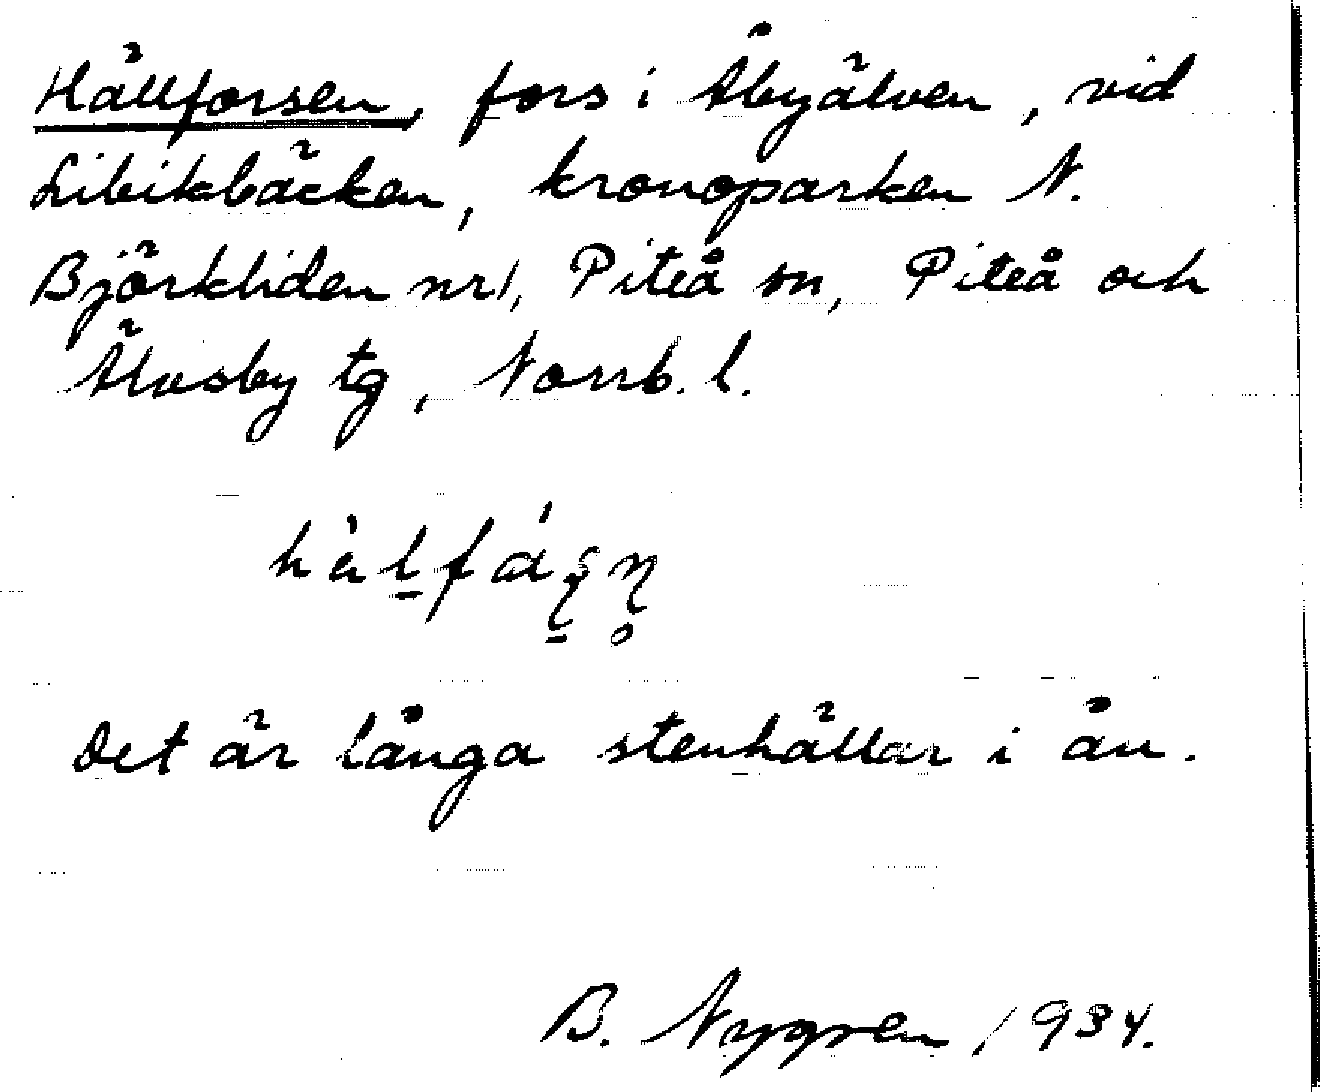 Hällforsen, fors i Åbyälven, vid
Libikbäcken, kronoparken N.
Björkliden nr1, Piteå sn, Piteå och
Älvsby tg, Norrb. l.
Det är långa stenhällar i ån.
B. Nygren 1934.